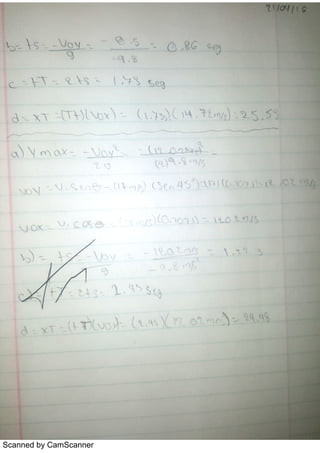 21/04/16
b= ts= -Voy/g = -8.5/-9.8 = 0.86 seg
c = tT = 2ts = 1.73 seg
d = XT =(Tt)(Vox) = (1.73)(14.72m/s)= 25.55
a) Ymax= -Voy²/2g = (12.02m/s)²/(2)9.8m/s
Voy = V.senθ=(17m/s)(Sen 45°)
Vox= V. cosθ = (0.7071)= 12.02m/s
b)= ts= -Voy/g = -12.02m/s / -9.8m/s² = 1.22 s
c) tT = 2ts = 2.45 seg
d = XT = (tT)(vox)= (2.45)(12.02m/s) = 29.48
Scanned by CamScanner